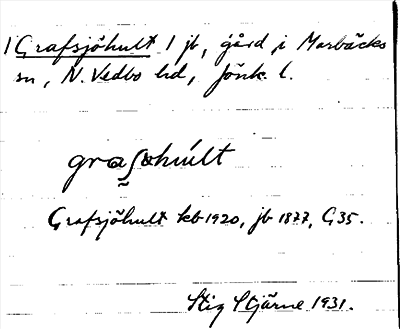 1 Grafsjöhult 1 jb, gård i Marbäcks
sn, N. Vedbo hd, Jönk. l.
graʃøhúlt
Grafsjöhult kb 1920, jb 1877, G 35.
Stig Stjärne 1931.